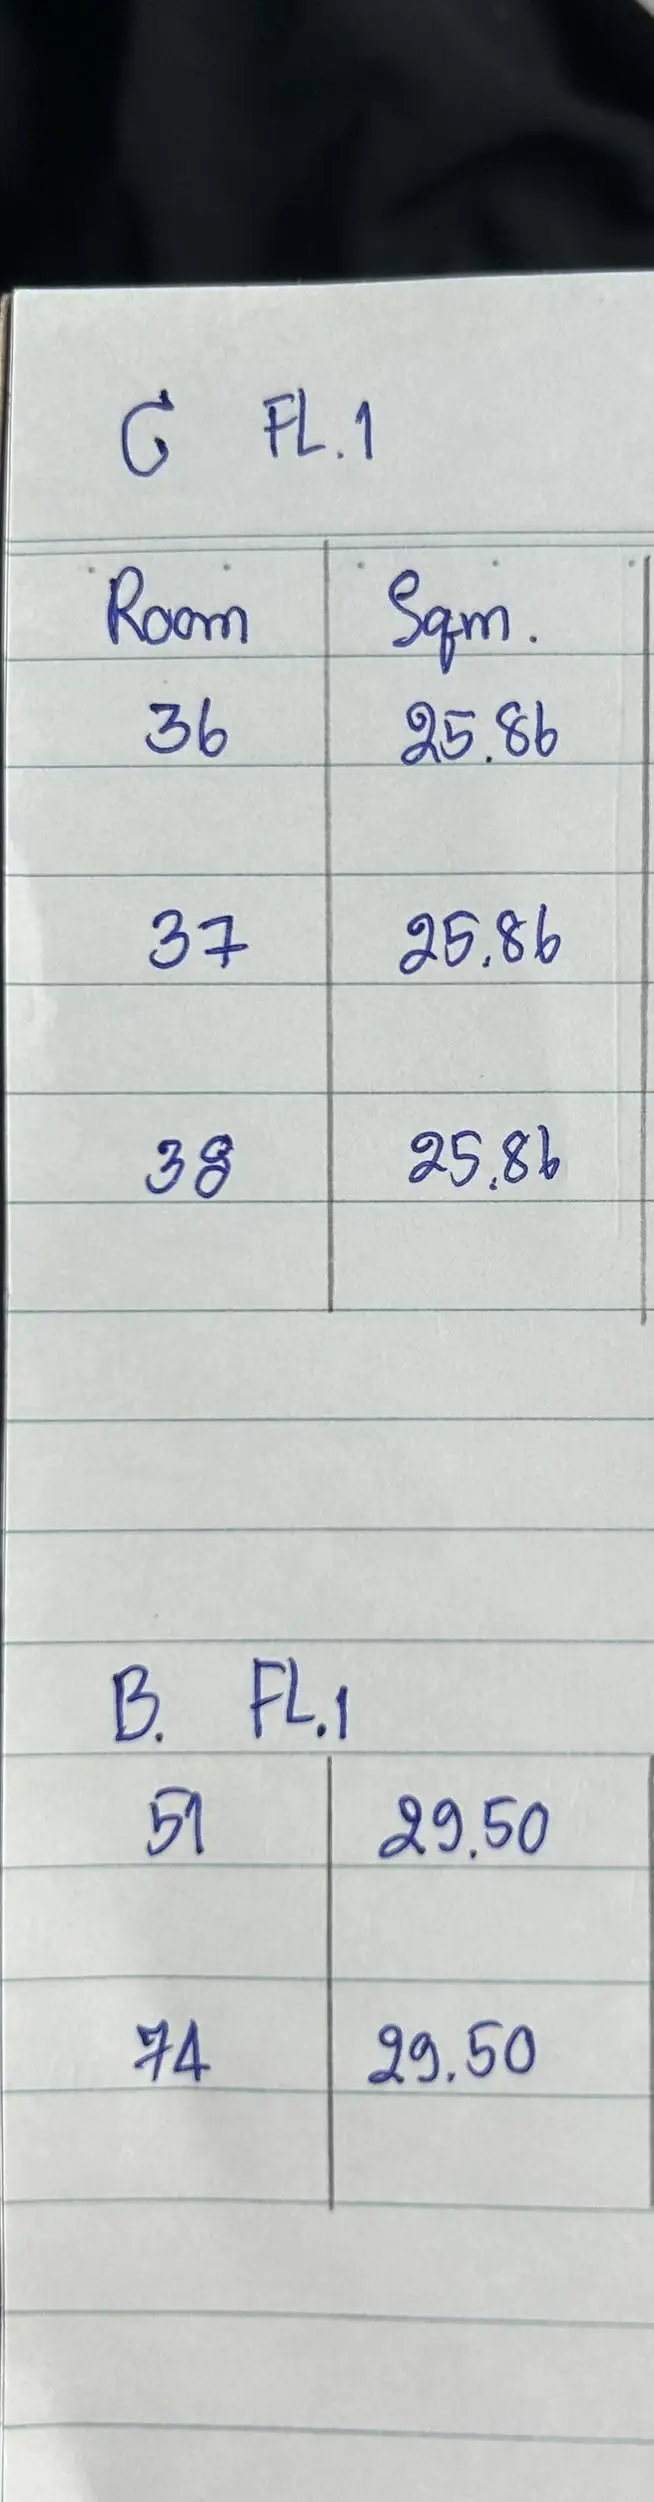 C FL.1
Room Sqm.
36 25.86
37 25.86
38 25.86
B. FL.1
51 29.50
74 29.50